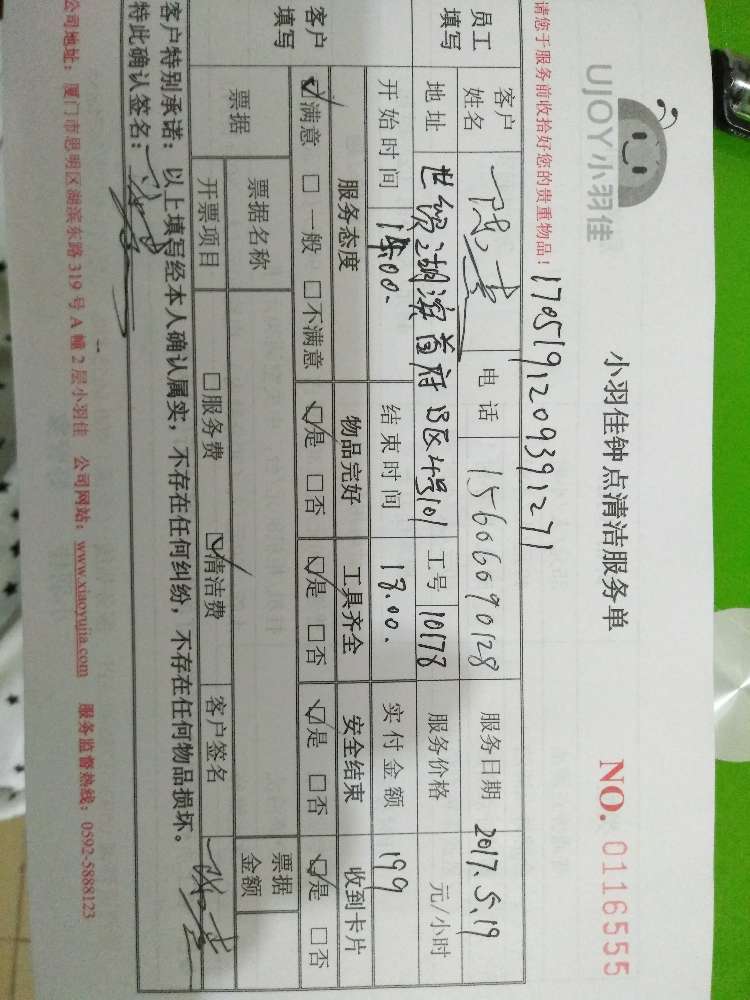 UJOY小羽佳
小羽佳钟点清洁服务单
NO. 0116555
请您于服务前收拾好您的贵重物品！
1705191209391271
员工填写
客户姓名
电话 15606090128 服务日期 2017.5.19
地址 世纪湖滨首府B区4号101 工号 10178 服务价格 元/小时
开始时间 14.00. 结束时间 17.00. 实付金额 199
客户填写
服务态度 物品完好 工具齐全 安全结束 收到卡片
☑满意 □一般 □不满意 ☑是 □否 ☑是 □否 ☑是 □否 ☑是 □否
票据 票据名称 票据金额
开票项目 □服务费 ☑清洁费 客户签名
客户特别承诺：以上填写经本人确认属实，不存在任何纠纷，不存在任何物品损坏。
特此确认签名：
公司地址：厦门市思明区湖滨东路 319 号 A 幢 2 层小羽佳 公司网站：www.xiaoyujia.com 服务监督热线：0592-5888123